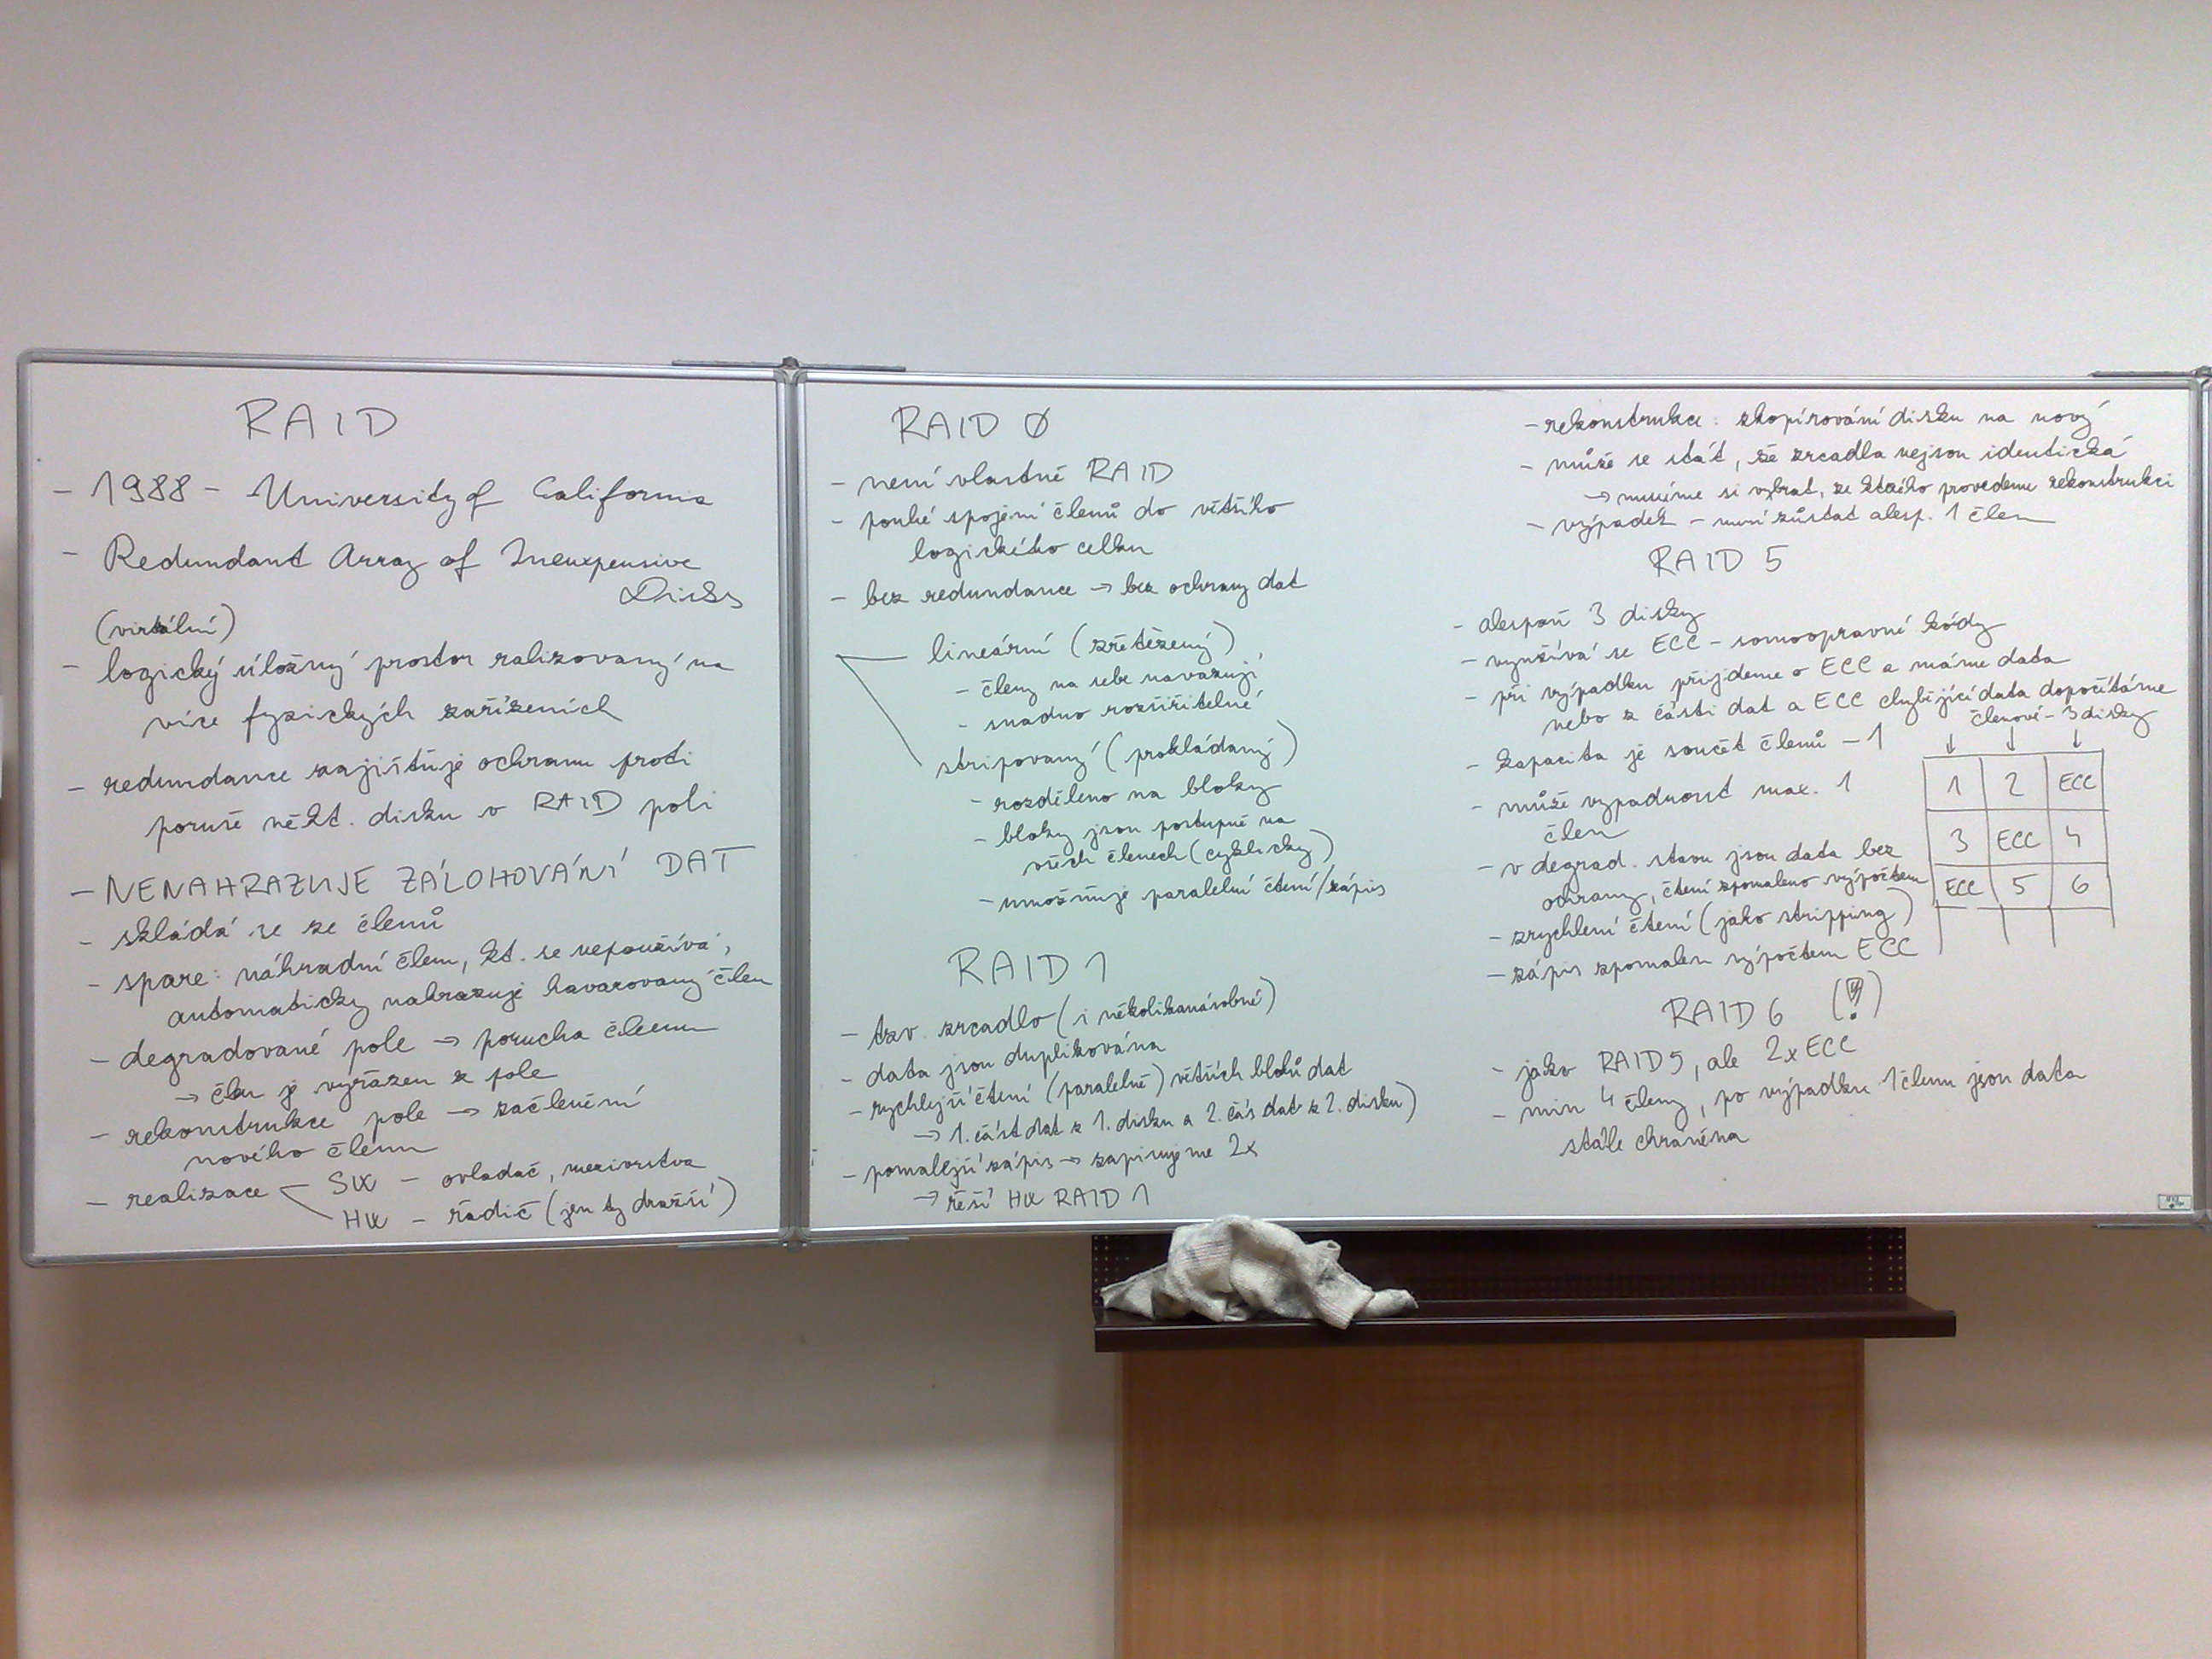 RAID
- 1988 - University of California
- Redundant Array of Inenxpensive
Disks
(virtální)
- logický úložný prostor ralizovaný na
více fyzických zařízeních
- redundance zajištuje ochranu proti
poruše někt. disku v RAID poli
- NENAHRAZUJE ZÁLOHOVÁNÍ DAT
- skládá se ze členů
- spare: náhradní člen, kt. se nepoužívá,
automaticky nahrazuje havarovaný člen
- degradované pole → porucha členu
→ člen je vyřazen z pole
- rekonstrukce pole → začlenění
nového členu
- realizace - SW - ovladač, mezivrstva
HW - řadič (jen ty dražší)
RAID 0
- není vlastně RAID
- pouhé spojení členů do většího
logického celku
- bez redundance → bez ochrany dat
lineární (zřetězený)
- členy na sebe navazují
- snadno rozšiřitelné
stripovaný (prokládaný)
- rozděleno na bloky
- bloky jsou postupně na
všech členech (cyklicky)
- umožňuje paralelní čtení/zápis
RAID 1
- tzv. zrcadlo (i několikanásobné)
- data jsou duplikována
- rychlejší čtení (paralelně) větších bloků dat
→ 1. část dat z 1. disku a 2. čás dat z 2. disku)
- pomalejší zápis → zapisujeme 2x
→ řeší HW RAID 1
- rekonstrukce: zkopírování disku na nový
- může se stát, že zrcadla nejsou identická
→ musíme si vybrat, ze kterého provedeme rekonstrukci
- výpadek - musí zůstat alesp. 1 člen
RAID 5
- alespoň 3 disky
- využívá se ECC - samoopravné kódy
- při výpadku přijdeme o ECC a máme data
nebo z části dat a ECC chybějící data dopočítáme
členové - 3 disky
- kapacita je součět členů - 1
- může vypadnout max. 1
člen
1 2 ECC
3 ECC 4
ECC 5 6
- v degrad. stavu jsou data bez
ochrany, čtení zpomaleno výpočtem
- zrychlení čtení (jako stripping)
- zápis zpomalen výpočtem ECC
RAID 6 (!)
- jako RAID 5, ale 2x ECC
- min 4 členy, po výpadku 1 členu jsou data
stále chráněna